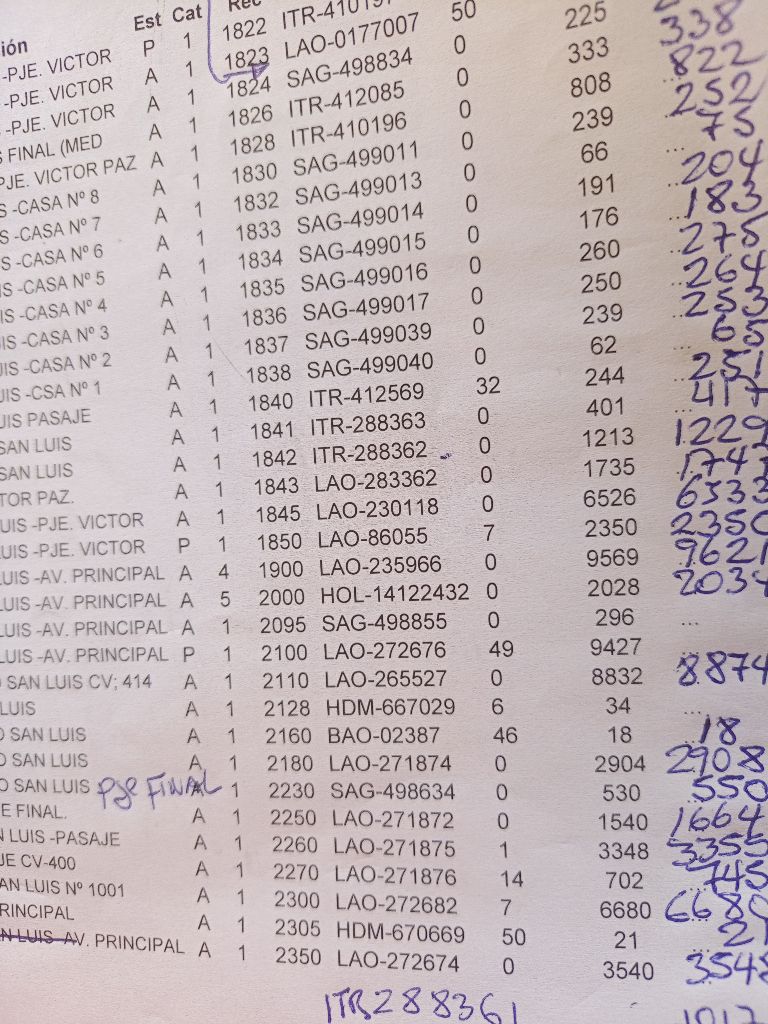 ión Est Cat Rec
-PJE. VICTOR P 1 1822 ITR-410197
-PJE. VICTOR A 1 1823 LAO-0177007 50
-PJE. VICTOR A 1 1824 SAG-498834 0 225
S FINAL (MED A 1 1826 ITR-412085 0 333 338
PJE. VICTOR PAZ A 1 1828 ITR-410196 0 808 822
S -CASA Nº 8 A 1 1830 SAG-499011 0 239 252
S -CASA Nº 7 A 1 1832 SAG-499013 0 66 75
S -CASA Nº 6 A 1 1833 SAG-499014 0 191 204
IS -CASA Nº 5 A 1 1834 SAG-499015 0 176 183
IS -CASA Nº 4 A 1 1835 SAG-499016 0 260 275
IS -CASA Nº 3 A 1 1836 SAG-499017 0 250 264
UIS -CASA Nº 2 A 1 1837 SAG-499039 0 239 253
UIS -CSA Nº 1 A 1 1838 SAG-499040 0 62 65
UIS PASAJE A 1 1840 ITR-412569 32 244 251
SAN LUIS A 1 1841 ITR-288363 0 401 417
SAN LUIS A 1 1842 ITR-288362 0 1213 1229
TOR PAZ. A 1 1843 LAO-283362 0 1735 1741
UIS -PJE. VICTOR A 1 1845 LAO-230118 0 6526 6533
LUIS -PJE. VICTOR P 1 1850 LAO-86055 7 2350 2350
LUIS -AV. PRINCIPAL A 4 1900 LAO-235966 0 9569 9621
LUIS -AV. PRINCIPAL A 5 2000 HOL-14122432 0 2028 2034
LUIS -AV. PRINCIPAL A 1 2095 SAG-498855 0 296 ...
LUIS -AV. PRINCIPAL P 1 2100 LAO-272676 49 9427
O SAN LUIS CV; 414 A 1 2110 LAO-265527 0 8832 8874
LUIS A 1 2128 HDM-667029 6 34 ...
O SAN LUIS A 1 2160 BAO-02387 46 18 18
O SAN LUIS A 1 2180 LAO-271874 0 2904 2908
O SAN LUIS Pje FINAL A 1 2230 SAG-498634 0 530 550
E FINAL. A 1 2250 LAO-271872 0 1540 1664
N LUIS -PASAJE A 1 2260 LAO-271875 1 3348 3355
JE CV-400 A 1 2270 LAO-271876 14 702 745
AN LUIS Nº 1001 A 1 2300 LAO-272682 7 6680 6680
RINCIPAL A 1 2305 HDM-670669 50 21 21
N LUIS -AV. PRINCIPAL A 1 2350 LAO-272674 0 3540 3548
ITR288361 1017